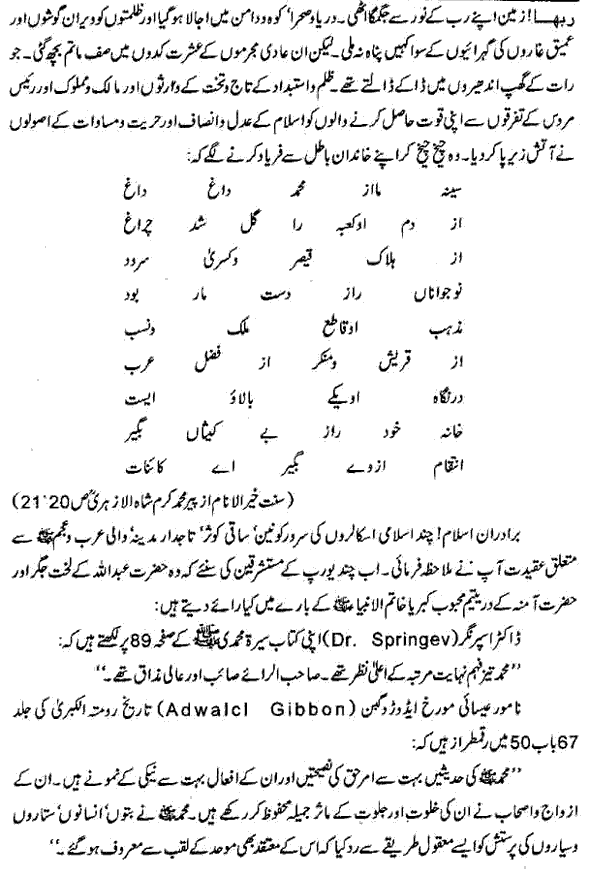 ربھا! زمین اپنے رب کے نور سے جگمگا اٹھی۔ دریا و صحرا' کوہ و دامن میں اجالا ہو گیا اور ظلمتوں کو ویران گوشوں اور
عمیق غاروں کی گہرائیوں کے سوا کہیں پناہ نہ ملی۔ لیکن ان عادی مجرموں کے عشرت کدوں میں صف ماتم بچھ گئی۔ جو
رات کے گھپ اندھیروں میں ڈاکے ڈالتے تھے۔ ظلم و استبداد کے تاج و تخت کے وارثوں اور مالک و مملوک اور رئیس
مرؤس کے تفرقوں سے اپنی قوت حاصل کرنے والوں کو اسلام کے عدل و انصاف اور حریت و مساوات کے اصولوں
نے آتش زیر پا کر دیا۔ وہ چیخ چیخ کر اپنے خاندان باطل سے فریاد کرنے لگے کہ:
سینہ مااز محمد داغ داغ
از دم اوکعبہ را گل شد چراغ
از ہلاک قیصر وکسریٰ سرود
نوجواناں راز دست مار بود
مذہب اوقاطع ملک ونسب
از قریش ومنکر از فضل عرب
درنگاہ اویکے بالاؤ ایست
خانہ خود راز بے کیشاں بگیر
انتقام ازوے بگیر اے کائنات
(سنت خیر الانام از پیر محمد کرم شاہ الازہری ص 20'21)
برادران اسلام! چند اسلامی اسکالروں کی سرور کونین' ساقی کوثر' تاجدار مدینہ' والی عرب و عجم ﷺ سے
متعلق عقیدت آپ نے ملاحظہ فرمائی۔ اب چند یورپ کے مستشرقین کی سنئے کہ وہ حضرت عبداللہ کے لخت جگر اور
حضرت آمنہ کے در یتیم محبوب کبریا خاتم الانبیا ﷺ کے بارے میں کیا رائے دیتے ہیں:
ڈاکٹر اسپرنگر (Dr. Springev) اپنی کتاب سیرۃ محمدی ﷺ کے صفحہ 89 پر لکھتے ہیں کہ:
"محمد تیز فہم نہایت مرتبہ کے اعلیٰ نظر تھے۔ صاحب الرائے صائب اور عالی مذاق تھے۔"
نامور عیسائی مورخ ایڈورڈ گبن (Adwalcl Gibbon) تاریخ رومتہ الکبریٰ کی جلد
67 باب 50 میں رقمطراز ہیں کہ:
"محمد ﷺ کی حدیثیں بہت سے امر حق کی نصیحتیں اور ان کے افعال بہت سے نیکی کے نمونے ہیں۔ ان کے
ازواج و اصحاب نے ان کی خلوت اور جلوت کے ماثر جمیلہ محفوظ کر رکھے ہیں۔ محمد ﷺ نے بتوں' انسانوں' ستاروں
و سیاروں کی پرستش کو ایسے معقول طریقے سے رد کیا کہ اس کے معتقد بھی موحد کے لقب سے معروف ہو گئے۔"